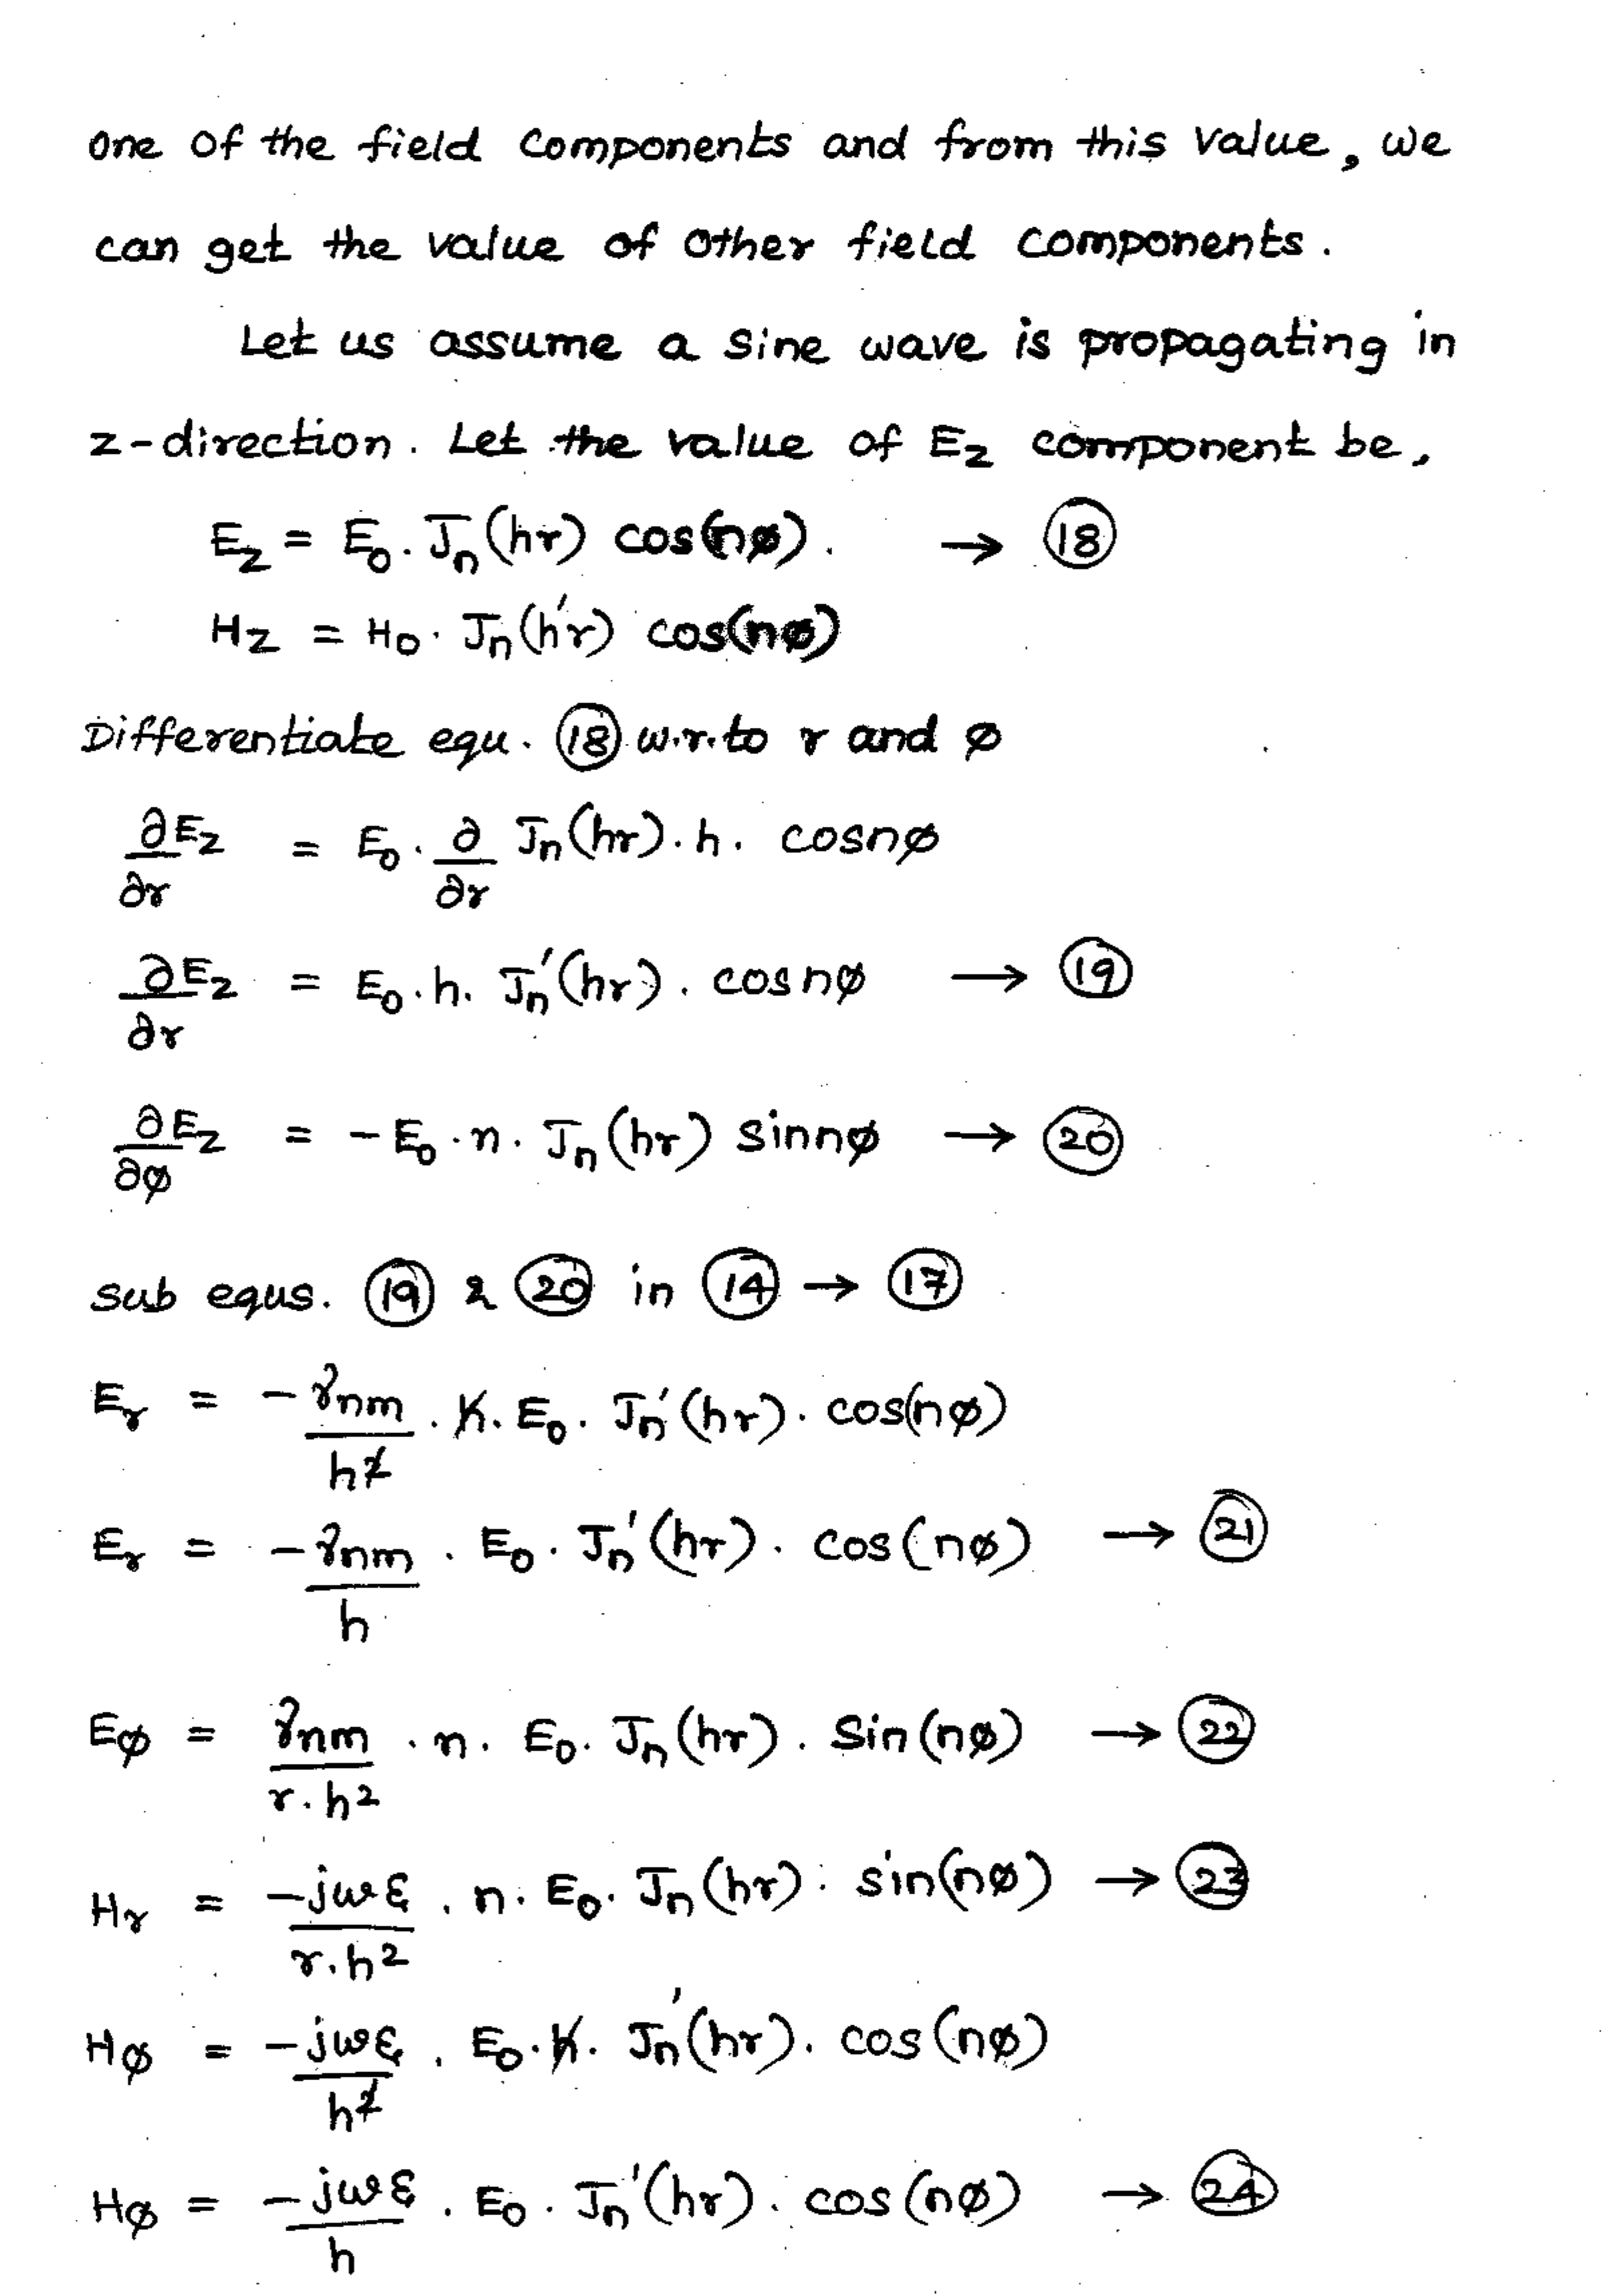 one of the field components and from this value, we
can get the value of other field components.
Let us assume a sine wave is propagating in
z-direction. Let the value of Ez component be,
Ez = E₀. Jn(hr) cos(nø). → (18)
Hz = H₀. Jn(h'r) cos(nø)
Differentiate equ. (18) w.r.to r and ø
∂Ez/∂r = E₀. ∂/∂r Jn(hr). h. cosnø
∂Ez/∂r = E₀. h. Jn'(hr). cosnø → (19)
∂Ez/∂ø = -E₀.n. Jn(hr) sinnø → (20)
sub equs. (19) & (20) in (14) → (17)
Er = -γnm/h² . h. E₀. Jn'(hr). cos(nø)
Er = -γnm/h . E₀. Jn'(hr). cos(nø) → (21)
Eø = γnm/r.h² . n. E₀. Jn(hr). Sin(nø) → (22)
Hr = -jωε/r.h² . n. E₀. Jn(hr). sin(nø) → (23)
Hø = -jωε/h² . E₀.h. Jn'(hr). cos(nø)
Hø = -jωε/h . E₀. Jn'(hr). cos(nø) → (24)